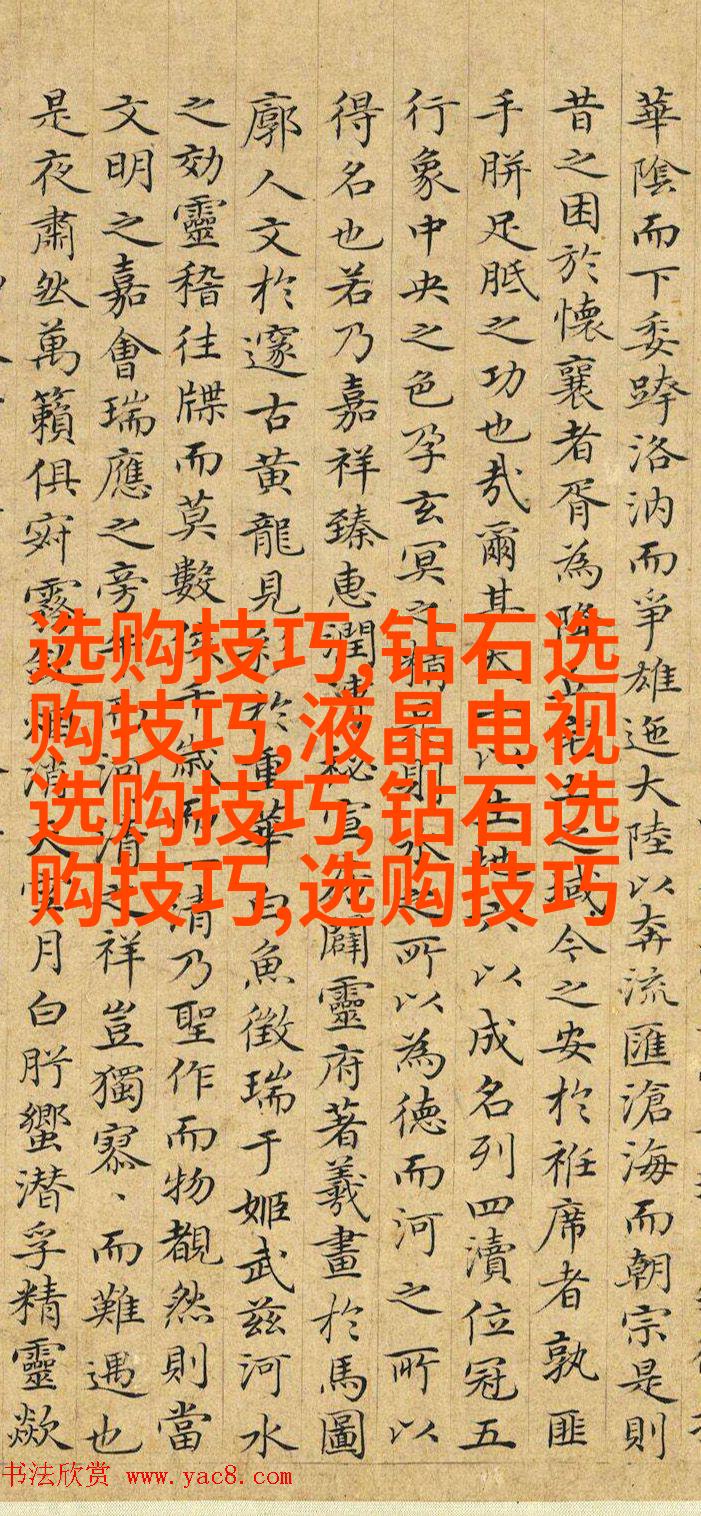 華陰而下委跨洛汭而爭雄迤大陸以奔流匯滄海而朝宗是則
昔之困於懷襄者胥為降之域今之安於袵席者孰匪
手胼足胝之功也哉爾其天一以生地六以成名列四瀆位冠五
行象中央之色孕玄冥之精是則水之所以為德而河之所以
得名也若乃嘉祥臻惠潤秘宣闢靈府著羲畫於馬圖
廓人文於邃古黃龍見彩於重華白魚徵瑞于姬武茲河水
之効靈稽往牒而莫數俟千歲而一清乃聖作而物覩然則當
文明之嘉會瑞應之旁河清之祥豈獨寥、而難遇也
是夜肅然萬籟俱寂霧斂烟消天空月白肸蠁潛孚精靈歘
选购技巧,钻石选
购技巧,液晶电视
选购技巧,钻石选
购技巧,选购技巧
书法欣赏 www.yac8.com